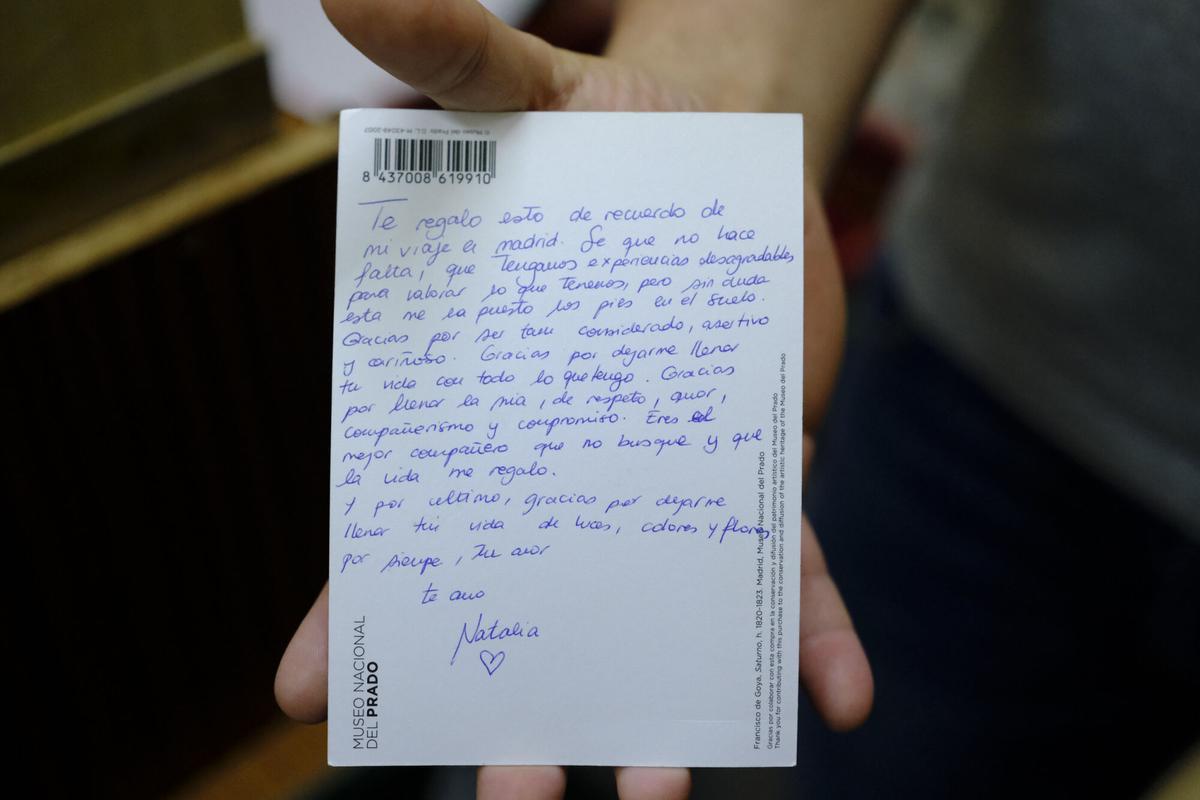 © Museo del Prado. D.L. M-43049-2007
8 437008 619910
Te regalo esto de recuerdo de
mi viaje a madrid. Se que no hace
falta, que tengamos experiencias desagradables
para valorar lo que tenemos, pero sin duda
esta me ha puesto los pies en el suelo.
Gracias por ser tan considerado, asertivo
y cariñoso. Gracias por dejarme llenar
tu vida con todo lo que tengo. Gracias
por llenar la mia, de respeto, amor,
compañerismo y compromiso. Eres el
mejor compañero que no busque y que
la vida me regalo.
Y por ultimo, gracias por dejarme
llenar tu vida de luces, colores y flores
por siempre, Tu amor
te amo
Natalia
MUSEO NACIONAL
DEL PRADO
Francisco de Goya, Saturno, h. 1820-1823. Madrid, Museo Nacional del Prado
Gracias por colaborar con esta compra en la conservación y difusión del patrimonio artístico del Museo del Prado
Thank you for contributing with this purchase to the conservation and diffusion of the artistic heritage of the Museo del Prado